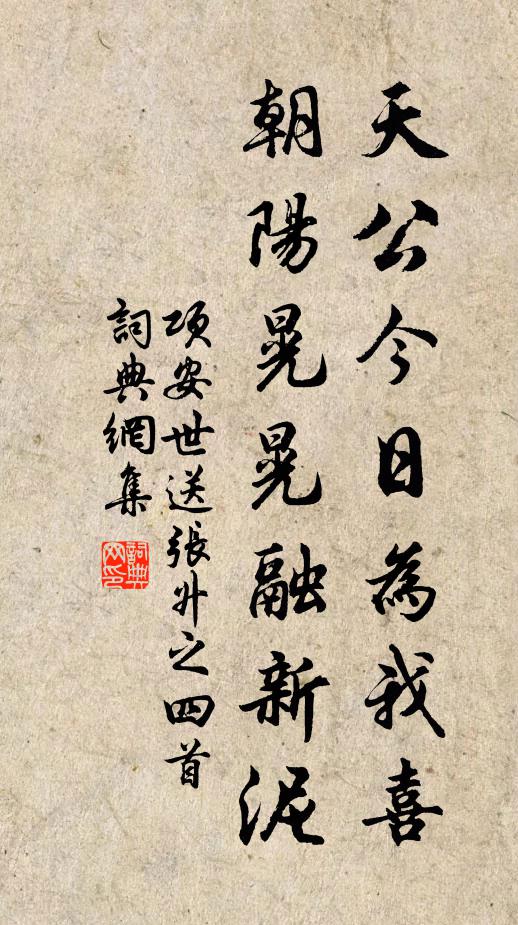 天公今日為我喜
朝陽晃晃融新泥
項安世送張升之四首
詞典網集
詞典网印